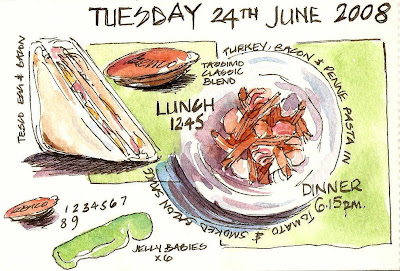 TUESDAY 24TH JUNE 2008
TESCO EGG & BACON
KENCO
TASSIMO
CLASSIC
BLEND
LUNCH
1245
TURKEY, BACON & PENNE PASTA IN
TOMATO & SMOKED BACON SAUCE
DINNER
6.15pm.
KENCO
1234567
89
JELLY BABIES
X6